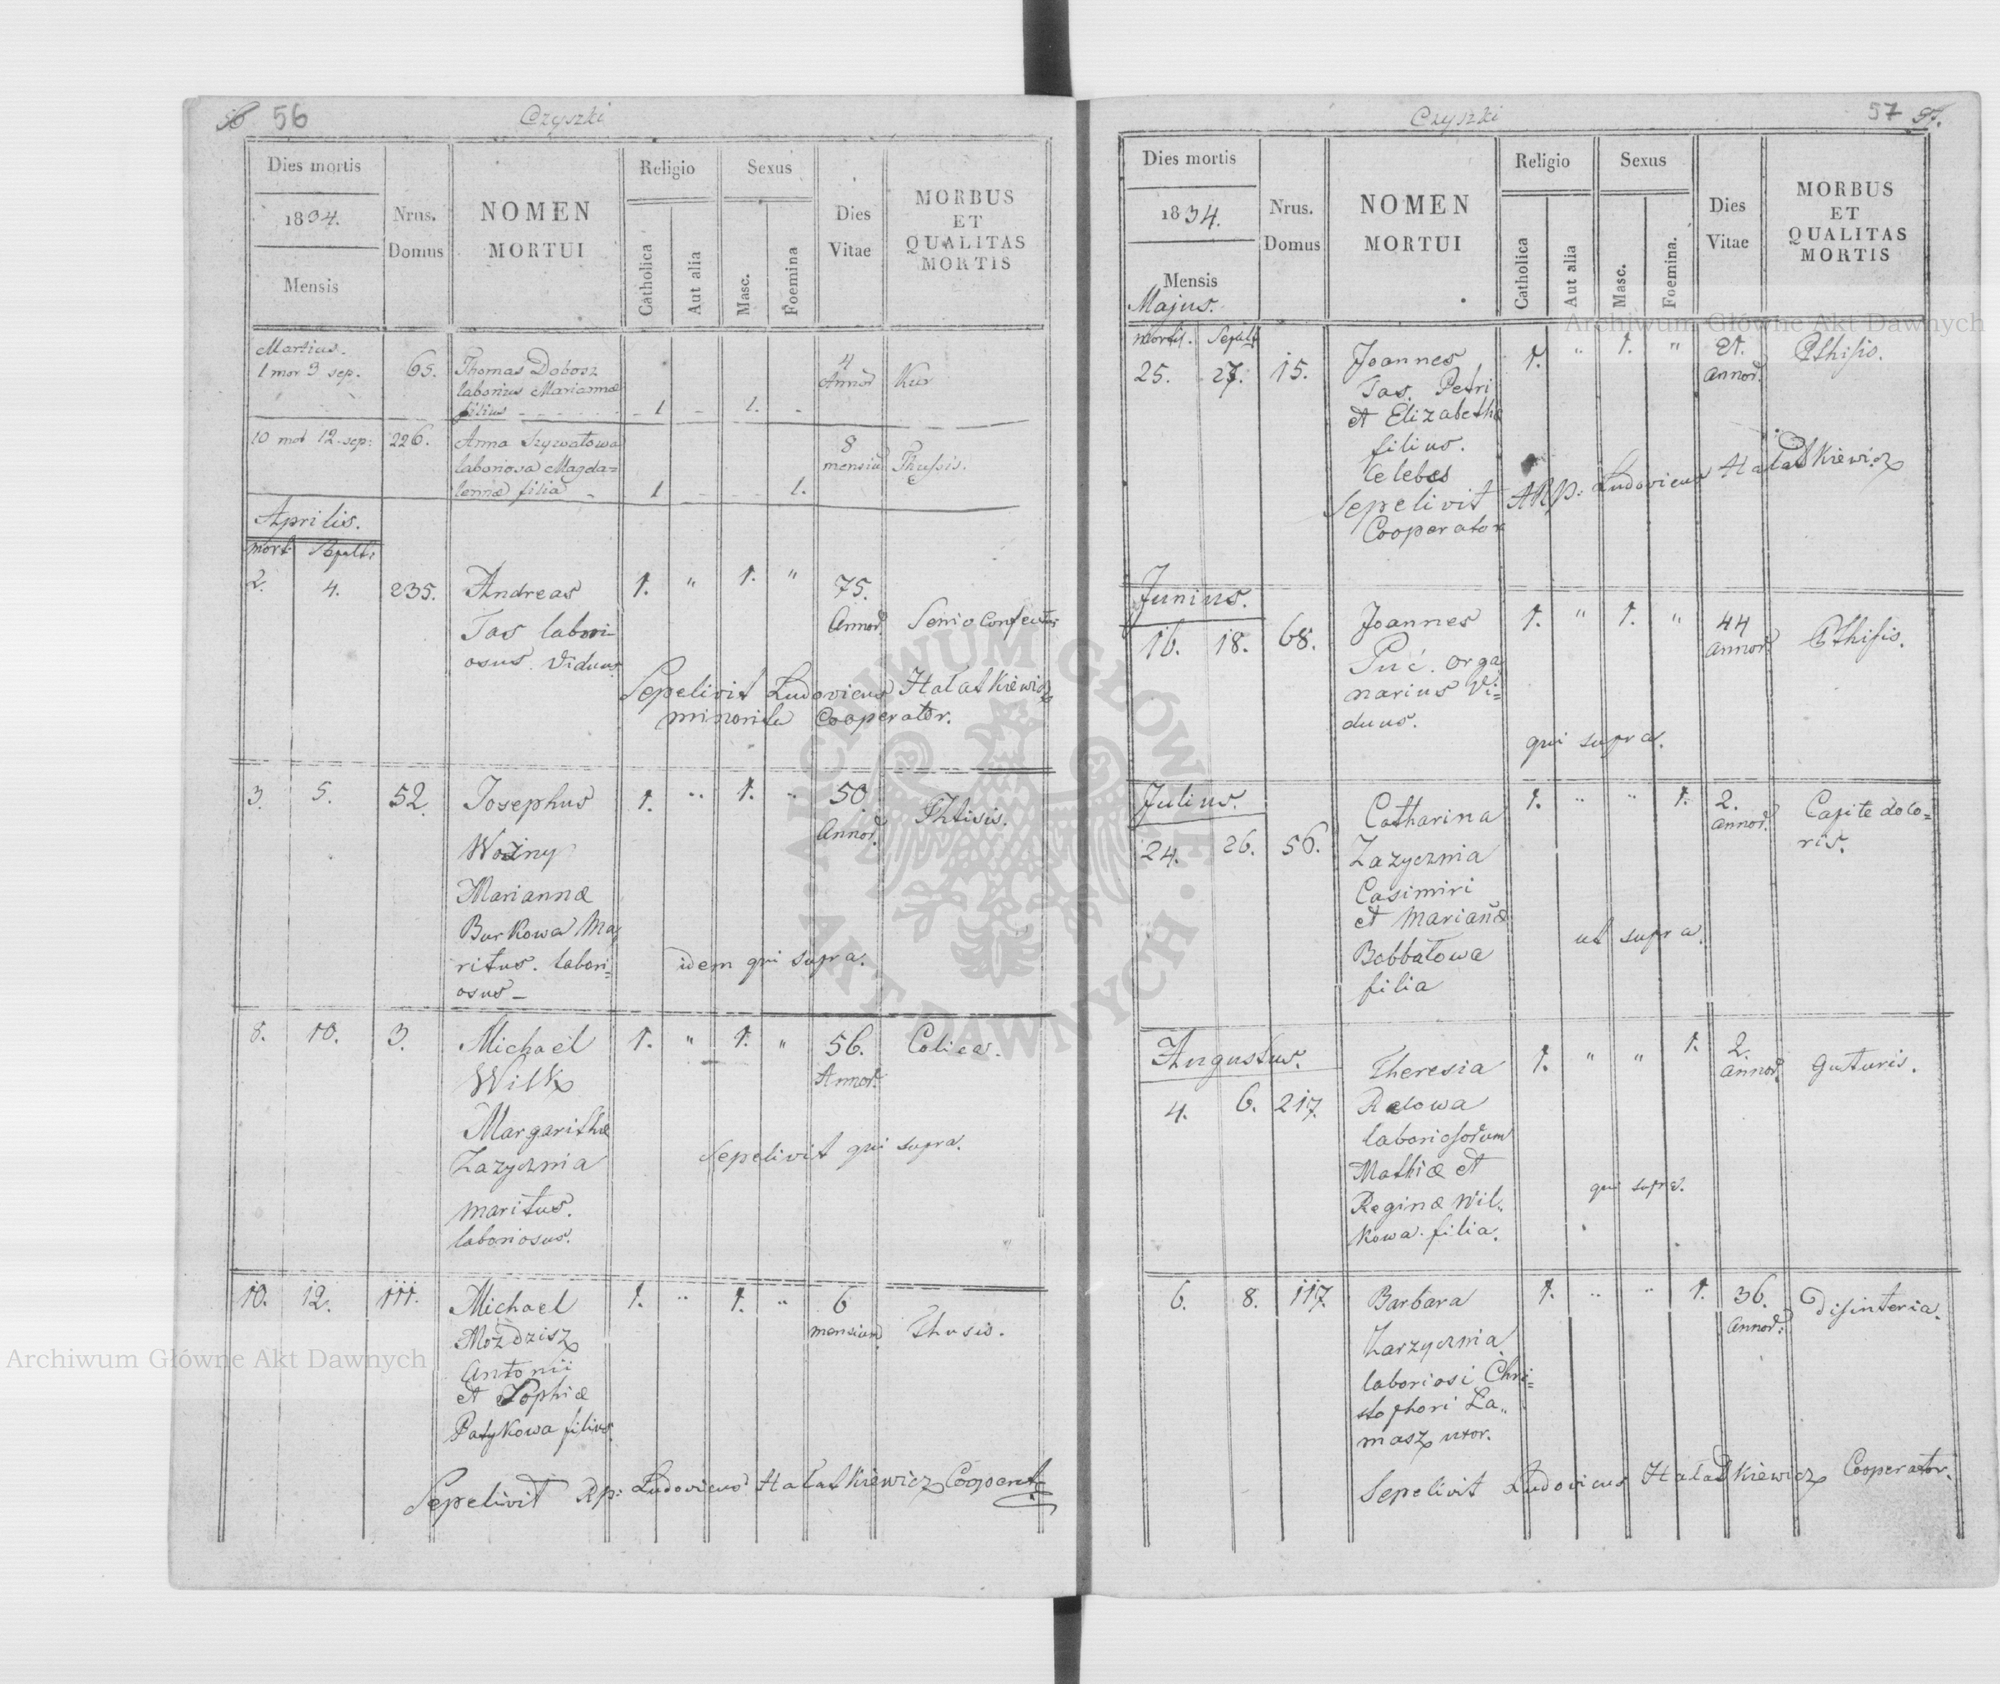 56 56
Czyszki
Dies mortis
1834.
Mensis
Nrus.
Domus
NOMEN
MORTUI
Religio
Catholica
Aut alia
Sexus
Masc.
Foemina
Dies
Vitae
MORBUS
ET
QUALITAS
MORTIS
Martius.
1 mor 3 sep. 65. Thomas Dobosz
laborius Mariannæ
filius 1 1. 4
Annor
10 mor 12. sep: 226. Anna Szywałowa
laboriosa Magda=
lennæ filia 1 1. 8
mensiu Thussis.
Aprilis.
mort. Sepult:
2. 4. 235. Andreas 1. " 1. " 75.
Annor. Senio confectus
Tas labori
osus. Viduus
Sepelivit Ludovicus Hałatkiewicz
minorita Cooperator.
3. 5. 52. Josephus 1. " 1. " 50.
Annor. Thtisis.
Woźny
Mariannæ
Burkowa Ma
ritus. labori=
osus
idem qui supra.
8. 10. 3. Michael 1. " 1. " 56.
Annor. Colica.
Wilk
Margarithæ
Zazycznia
maritus.
laboriosus.
Sepelivit qui supra.
10. 12. 111. Michael 1. " 1. " 6
mensium Thusis.
Moździsz
Antonii
et Sophiæ
Patykowa filius
Sepelivit Rp: Ludovicus Hałatkiewicz Cooperat.
Czyszki
57 57.
Dies mortis
1834.
Mensis
Majus.
Nrus.
Domus
NOMEN
MORTUI
Religio
Catholica
Aut alia
Sexus
Masc.
Foemina.
Dies
Vitae
MORBUS
ET
QUALITAS
MORTIS
mortis. Sepult
25. 27. 15. Joannes 1. " 1. " 21.
Annor.
Tas. Petri
et Elizabethæ
filius.
Celebes
Sepelivit ARp: Ludovicus Hałatkiewicz
Cooperator
Junius.
16. 18. 68. Joannes 1. " 1. " 44
Annor.
Puć. orga
narius Vi=
duus.
qui supra.
Julius.
24. 26. 56. Catharina 1. " " 1. 2.
Annor. Capite dolo=
ris.
Zazycznia
Casimiri
et Mariañæ
Bobbałowa
filia
ut supra.
Augustus.
4. 6. 217. Theresia 1. " " 1. 2.
Annor. Guturis.
laboriosorum
Mathiæ et
Reginæ Wil=
kowa. filia.
qui supra.
6. 8. 117. Barbara 1. " " 1. 36.
Annor. Disinteria.
Zarzycznia
laboriosi Chri=
stophori Ła=
masz uxor.
Sepelivit Ludovicus Hałatkiewicz Cooperator.
Archiwum Główne Akt Dawnych
Archiwum Główne Akt Dawnych
ARCHIWUM GŁÓWNE
AKT DAWNYCH